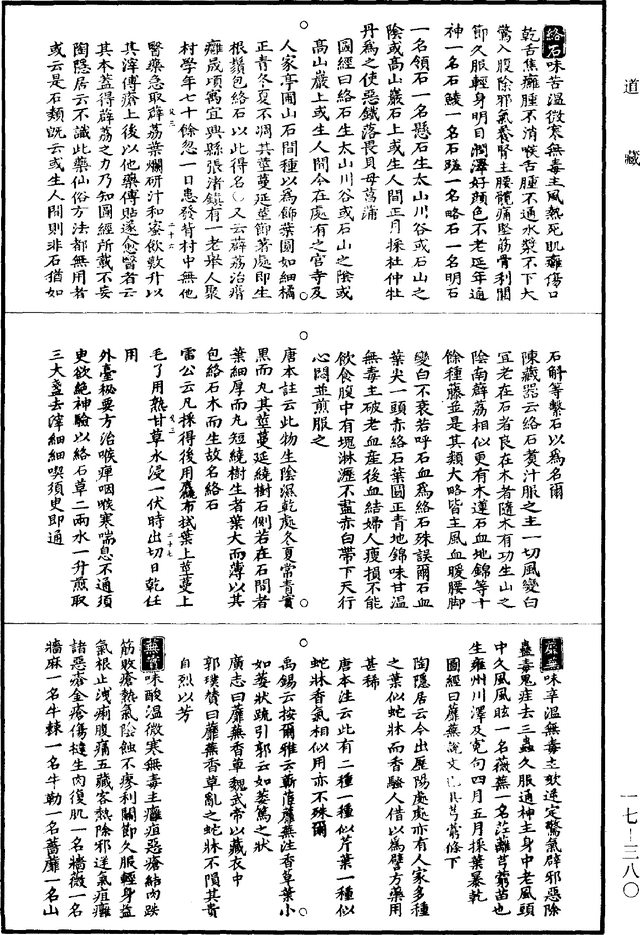 道藏
絡石味苦溫微寒無毒主風熱死肌癰傷口
乾舌焦癰腫不消喉舌腫不通水漿不下大
驚入腹除邪氣養腎主腰髖痛堅筋骨利關
節久服輕身明目潤澤好顏色不老延年通
神一名石鯪一名石蹉一名略石一名明石
一名領石一名懸石生太山川谷或石山之
陰或高山巖石上或生人間正月採杜仲牡
丹為之使惡鐵落畏貝母菖蒲
圖經曰絡石生太山川谷或石山之陰或
高山巖上或生人間今在處有之宮寺及
人家亭圃山石間種以為飾葉圓如細橘
正青冬夏不凋其莖蔓延莖節著處即生
根鬚包絡石以此得名○又云薜荔治背
癰晟頃寓宜興縣張渚鎮有一老舉人聚
村學年七十餘忽一日患發背村中無他
醫藥急取薜荔葉爛研汁和蜜飲數升以
其滓傅瘡上後以他藥傅貼遂愈醫者云
其本蓋得薜荔之力乃知圖經所載不妄
陶隱居云不識此藥仙俗方法都無用者
或云是石類既云或生人間則非石猶如
石斛等繫石以為名爾
陳藏器云絡石煑汁服之主一切風變白
宜老在石者良在木者隨木有功生山之
陰南薜荔相似更有木蓮石血地錦等十
餘種藤並是其類大略皆主風血暖腰脚
變白不衰若呼石血為絡石殊誤爾石血
葉尖一頭赤絡石葉圓正青地錦味甘溫
無毒主破老血產後血結婦人瘦損不能
飲食腹中有塊淋瀝不盡赤白帶下天行
心悶並煎服之
唐本註云此物生陰濕乾處冬夏常青實
黑而丸其莖蔓延繞樹石側若在石間者
葉細厚而丸短繞樹生者葉大而薄以其
包絡石木而生故名絡石
雷公云凡採得後用麤布拭葉上莖蔓上
毛了用熟甘草水浸一伏時出切日乾任
用
外臺秘要方治喉痺咽喉塞喘息不通須
臾欲絕神驗以絡石草二兩水一升煎取
三大盞去滓細細喫須臾即通
蘼蕪味辛溫無毒主欬逆定驚氣辟邪惡除
蠱毒鬼疰去三蟲久服通神主身中老風頭
中久風風眩一名薇蕪一名茳蘺芎藭苗也
生雍州川澤及寃句四月五月採葉暴乾
圖經曰蘼蕪說文已具芎藭條下
陶隱居云今出歷陽處處亦有人家多種
之葉似蛇牀而香騷人借以為譬方藥用
甚稀
唐本注云此有二種一種似芹葉一種似
蛇牀香氣相似用亦不殊爾
禹錫云按爾雅云蘄茝蘼蕪注香草葉小
如萎狀疏引郭云如萎蔫之狀
廣志曰蘼蕪香草魏武帝以藏衣中
郭璞贊曰蘼蕪香草亂之蛇牀不隕其貴
自烈以芳
味酸溫微寒無毒主癰疽惡瘡結肉跌
筋敗瘡熱氣陰蝕不瘳利關節久服輕身益
氣根止洩痢腹痛五藏客熱除邪逆氣疽癩
諸惡瘡金瘡傷撻生肉復肌一名牆薇一名
牆麻一名牛棘一名牛勒一名薔蘼一名山
一七—三八〇